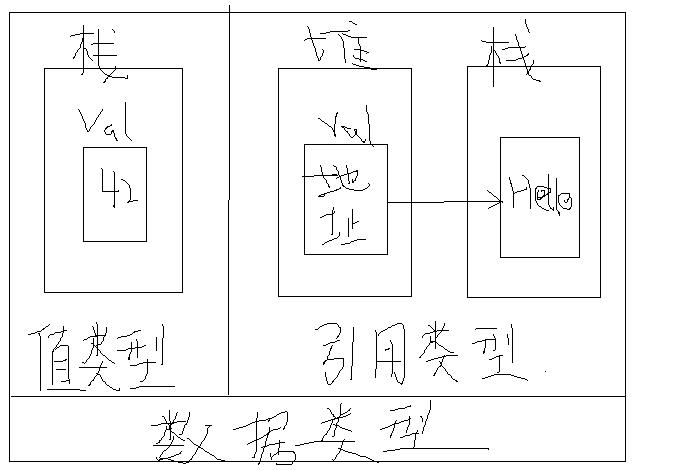 栈
val
42
值类型
堆
val
地
址
栈
Hello
引用类型
数据类型